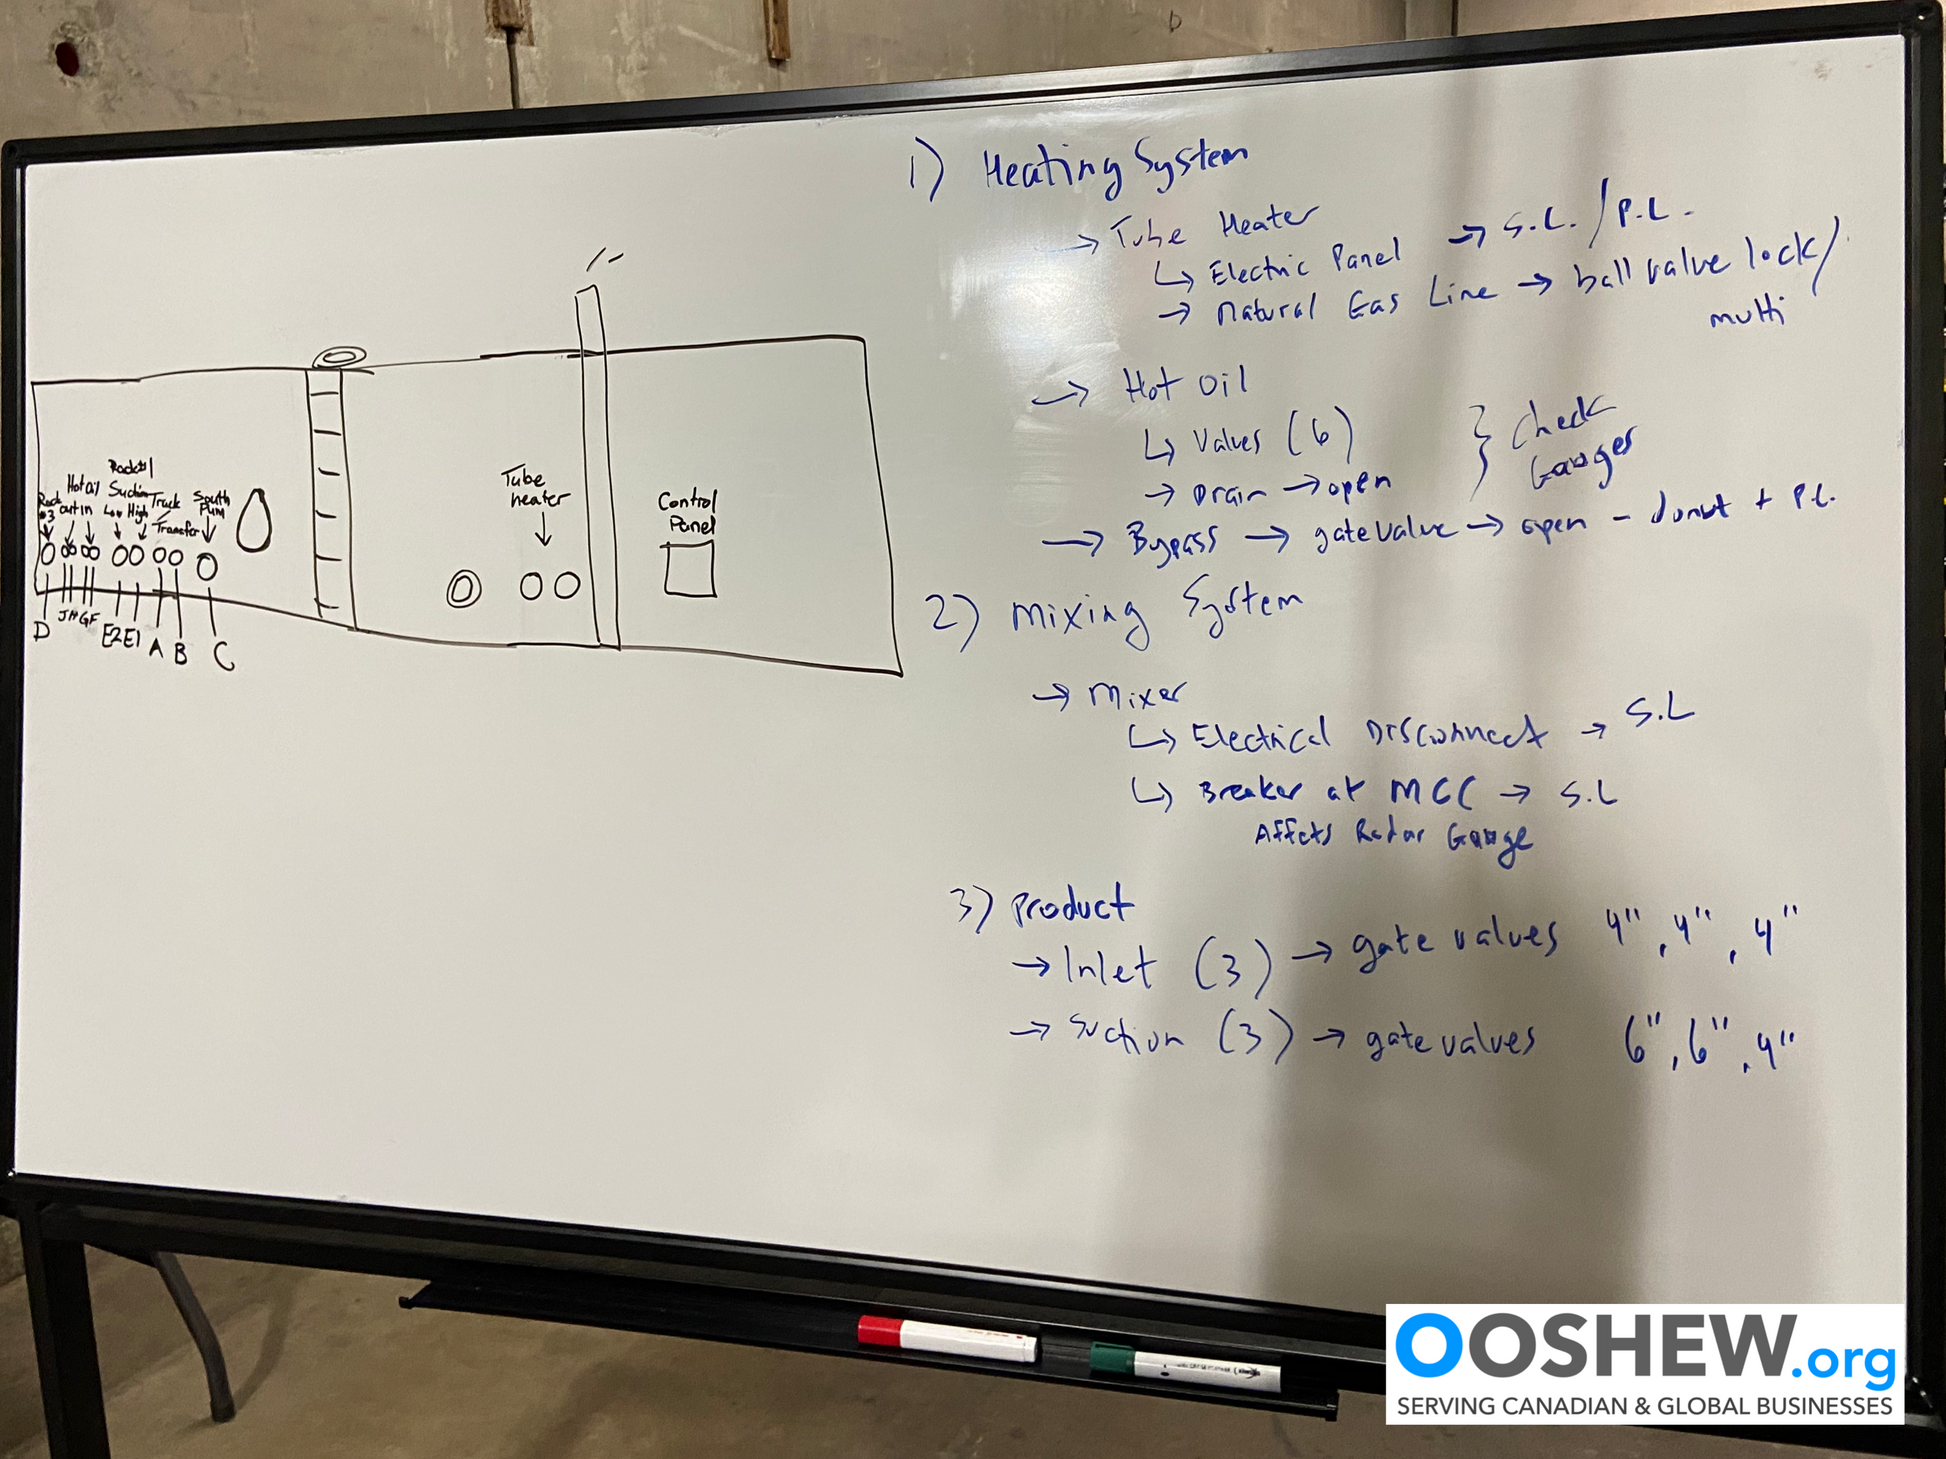 1) Heating System
→ Tube Heater
↳ Electric Panel → S.L. / P.L.
→ Natural Gas Line → ball valve lock/
multi
→ Hot Oil
↳ Valves (6)
→ Drain → open
} Check
Gauges
→ Bypass → gate valve → open - donut + P.L.
2) Mixing System
→ Mixer
↳ Electrical Disconnect → S.L
↳ Breaker at MCC → S.L
Affects Radar Gauge
3) Product
→ Inlet (3) → gate valves 4", 4", 4"
→ Suction (3) → gate valves 6", 6", 4"
Rack
#3
Hot Oil
out in
Suction
Low High
Truck
Transfer
South
Tube
heater
Control
Panel
D
J H G F
E2 E1
A
B
C
OOSHEW.org
SERVING CANADIAN & GLOBAL BUSINESSES